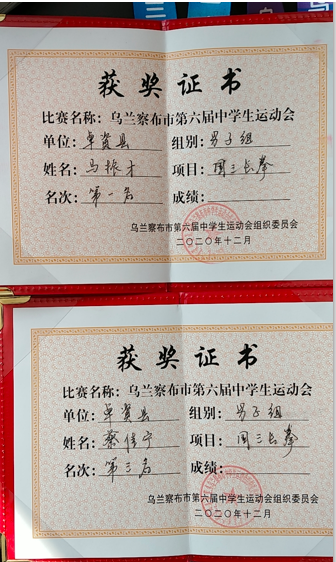 获奖证书
比赛名称：乌兰察布市第六届中学生运动会
单位：卓资县 组别：男子组
姓名：马振才 项目：国三长拳
名次：第一名 成绩：
乌兰察布市第六届中学生运动会组织委员会
二〇二〇年十二月
获奖证书
比赛名称：乌兰察布市第六届中学生运动会
单位：卓资县 组别：男子组
姓名：蔡佳宁 项目：国三长拳
名次：第三名 成绩：
乌兰察布市第六届中学生运动会组织委员会
二〇二〇年十二月